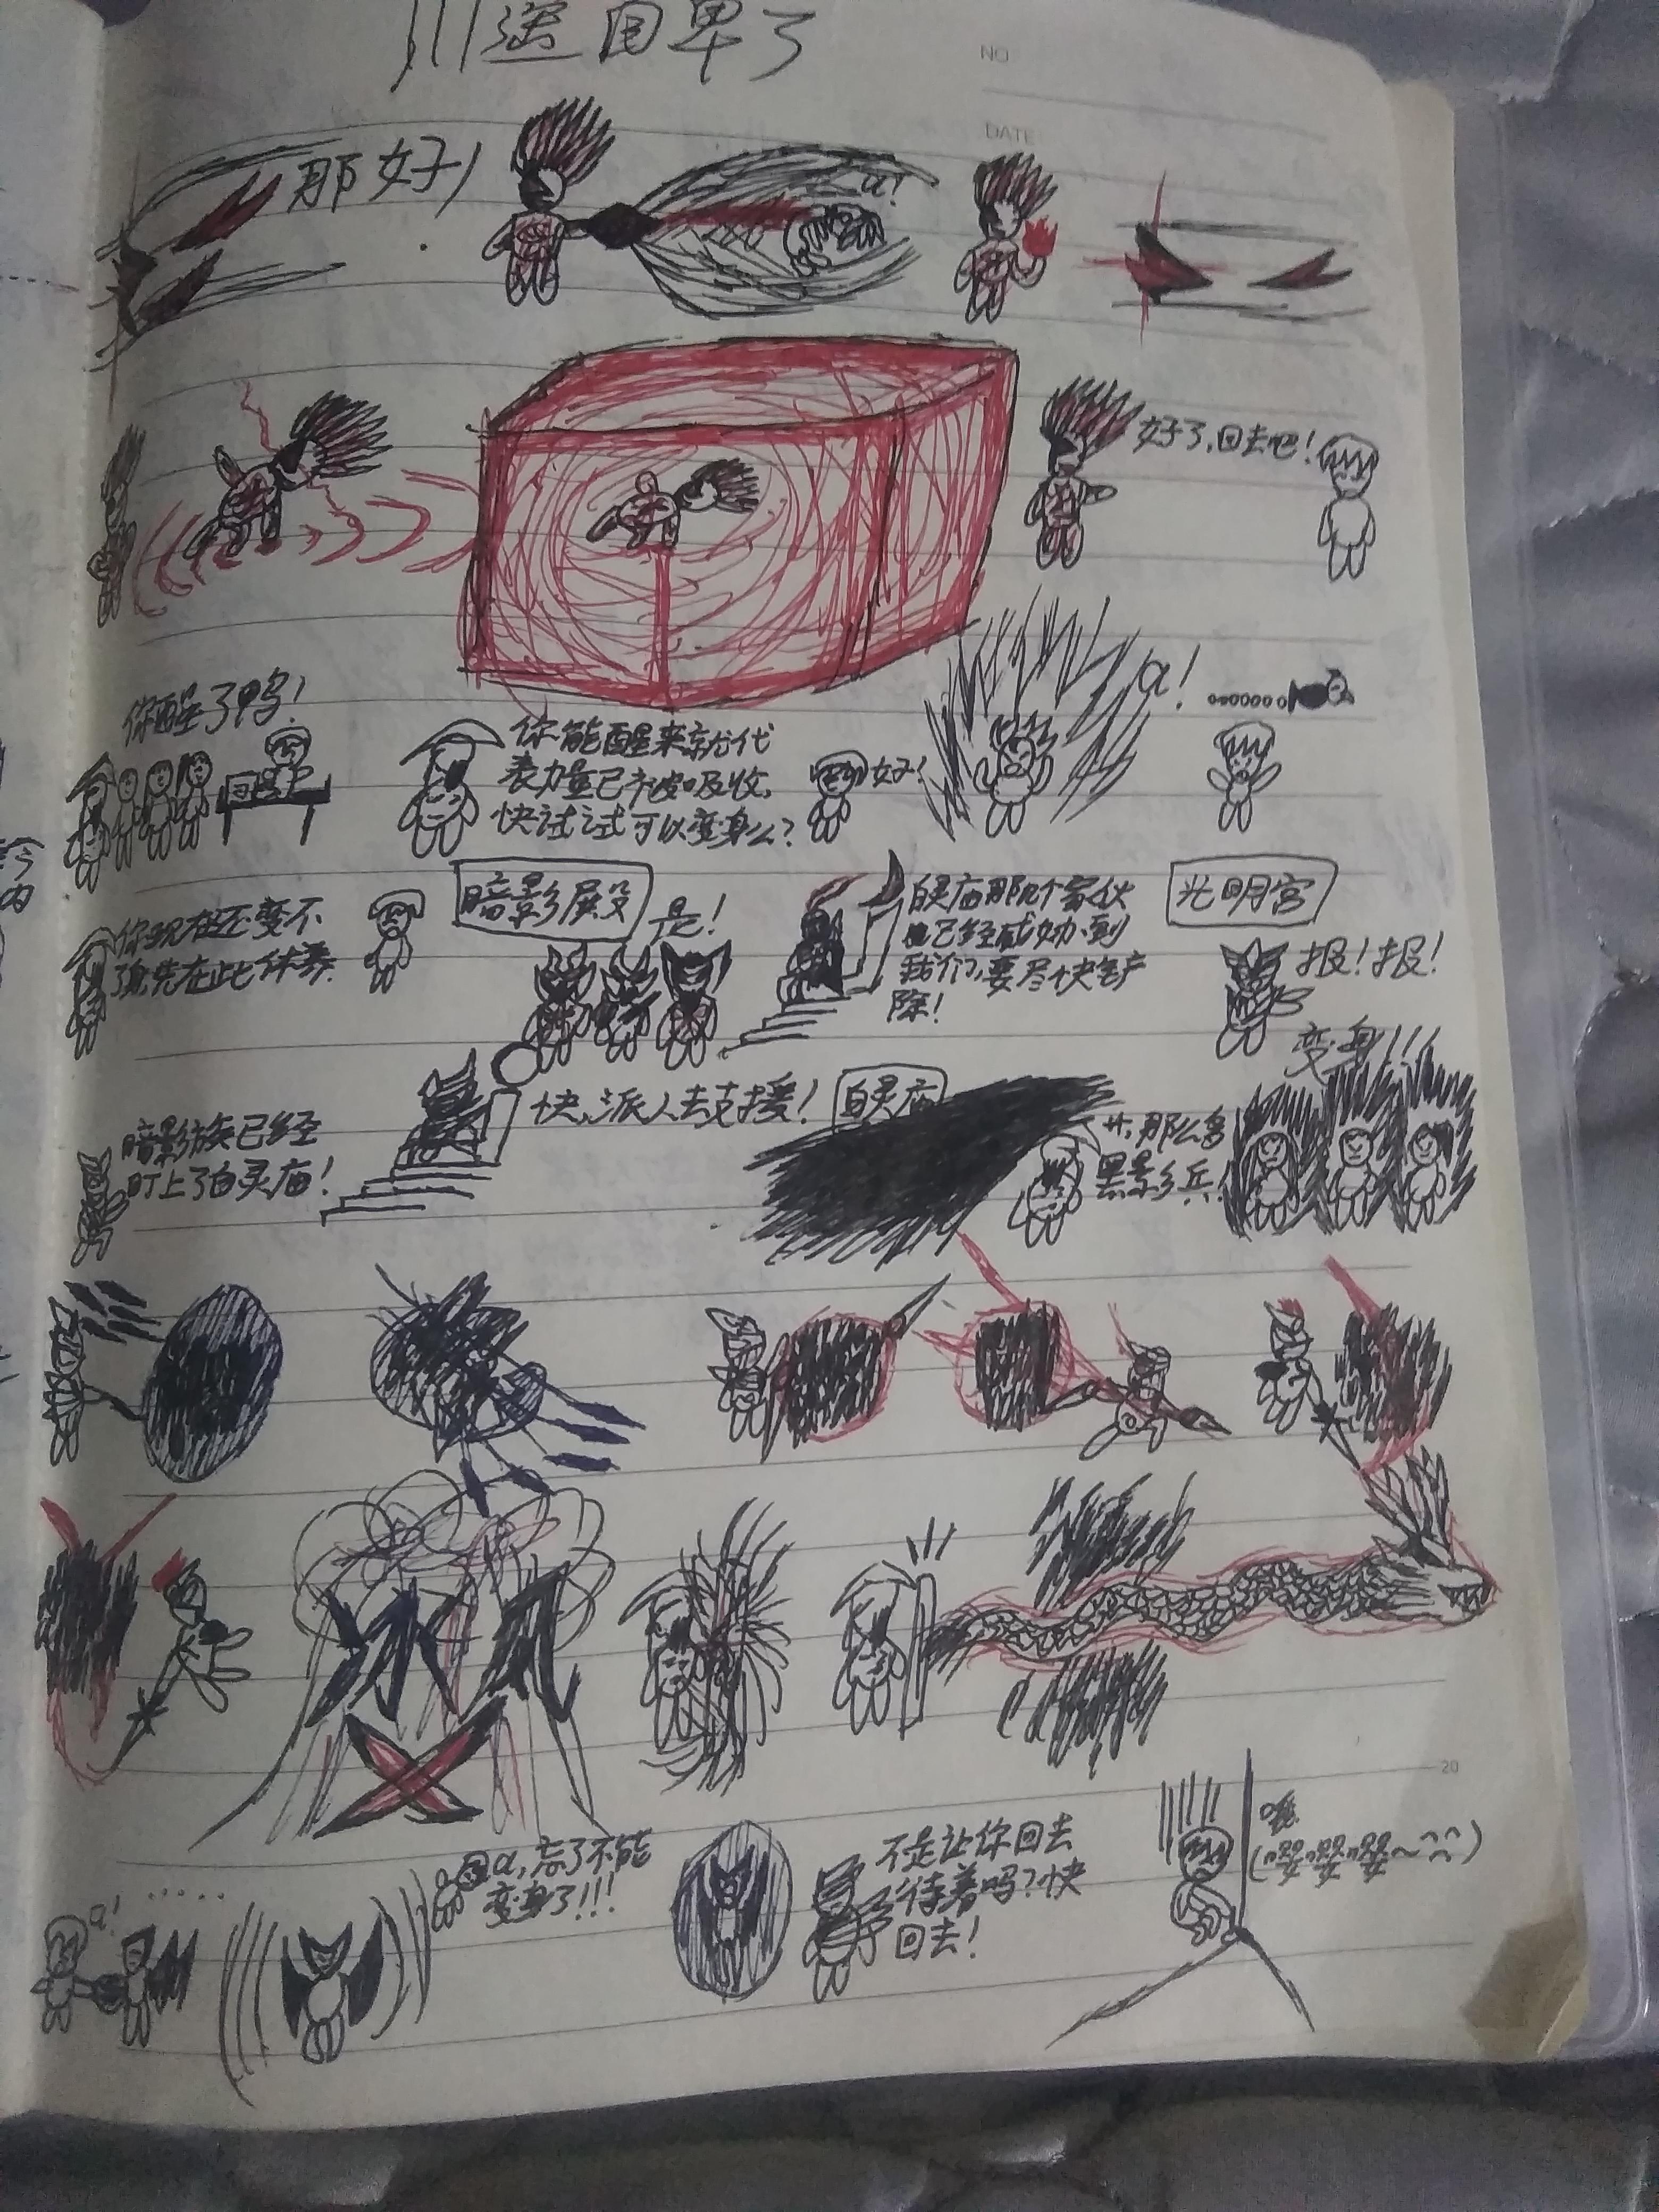 NO
DATE
那好!
a!
好了,回去吧!
你醒了鸭!
你能醒来就代
表力量已被吸收,
快试试可以变身么?
好!
a!
........
你现在还变不
了身先在此休养.
暗影殿
是!
白灵庙那几个家伙
已经威胁到
我们,要尽快铲
除!
光明宫
报!报!
暗影族已经
盯上了白灵庙!
快,派人去支援!
白灵庙
那么多
黑影兵,
变身!!!
冰风
20
a!
......
a,忘了不能
变身了!!!
不是让你回去
待着吗?快
回去!
哦
(嘤嘤嘤~^^)